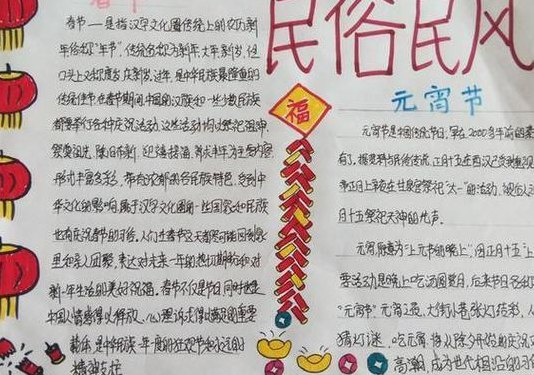 春节
春节——是指汉字文化圈传统上的农历新
年俗称"年节",传统名称为新年、大年、新岁,但
口头上又称度岁、庆新岁、过年,是中华民族最隆重的
传统佳节在春节期间中国的汉族和一些少数民族
都要举行各种庆祝活动,这些活动均以祭祀祖神、
祭奠祖先、除旧布新、迎禧接福、祈求丰年为主要内容
形式丰富多彩,带有浓郁的各民族特色,受到中
华文化的影响,属于汉字文化圈的一些国家和民族
也有庆祝春节的习俗。人们在春节这天都尽可能回到家
里和亲人团聚,表达对未来一年的热切期盼和对
新一年生活的美好祝福。春节不仅是节日同时也是
中国人情感得以释放、心理诉求得以满足的重要
载体是中华民族一年一度的狂欢节和永远的
精神支柱
福
民俗民风
元宵节
元宵节是中国传统节日,早在2000多年前的
有了,据资料与民俗传说,正月十五在西汉已
帝正月上辛夜在甘泉宫祭祀"太一"的活动,被后人
月十五祭祀天神的先声。
元宵原意为"上元节的晚上",因正月十五"上
要活动是晚上吃汤圆赏月,后来节日名
"元宵节"元宵之夜,大街小巷张灯结彩,人
猜灯谜,吃元宵,将从除夕开始的庆祝
高潮,成为世代相沿的习